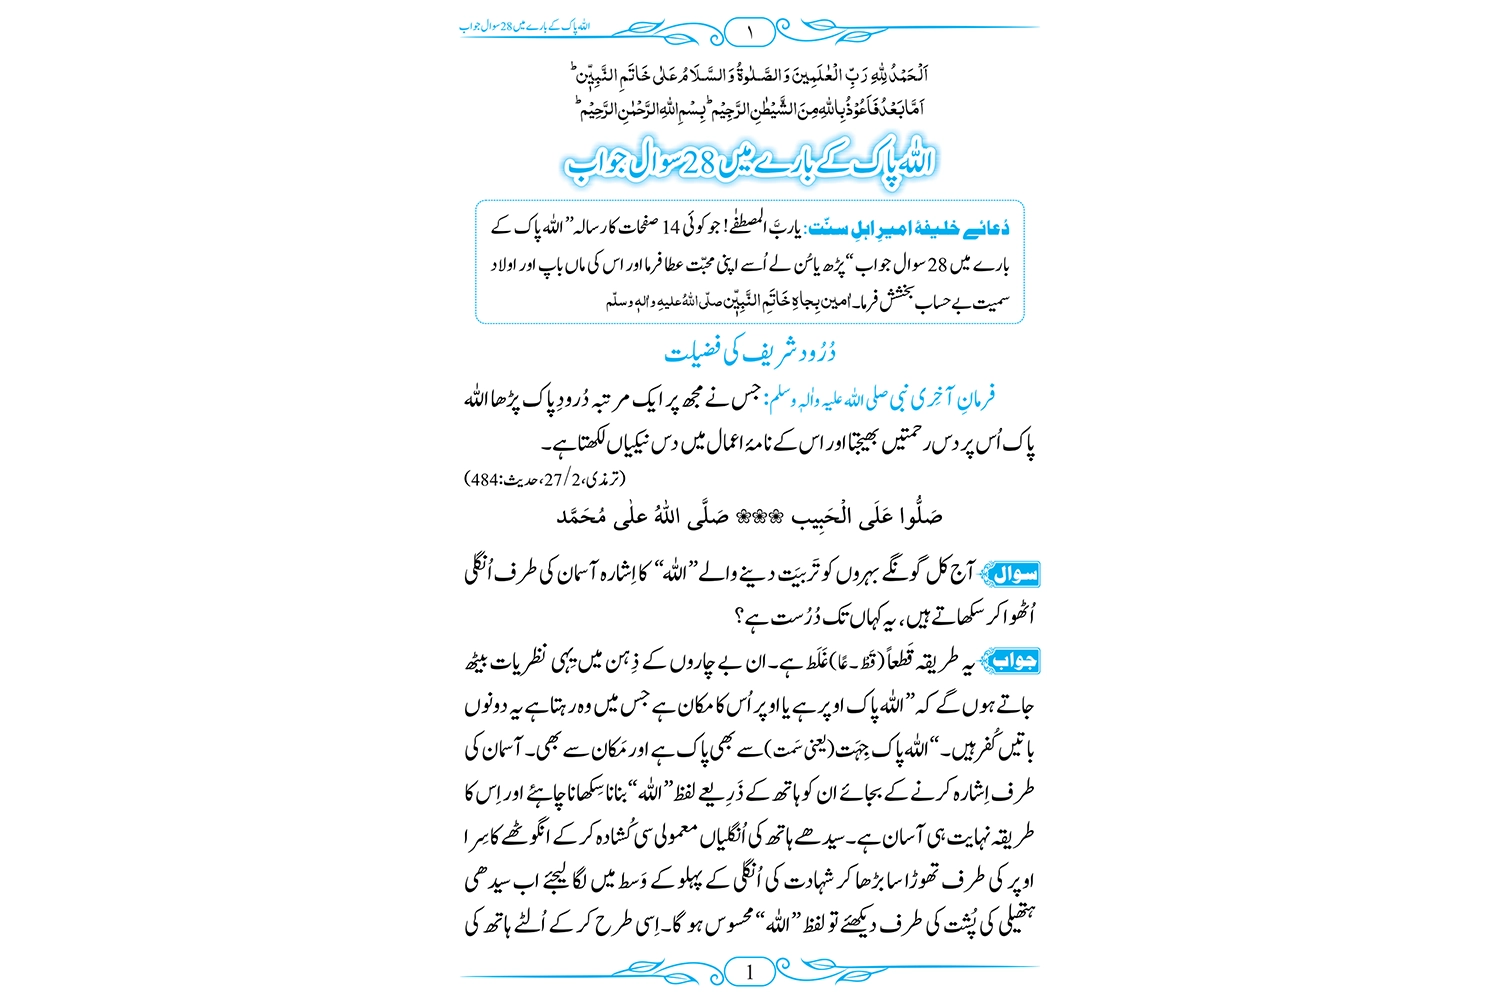 اللہ پاک کے بارے میں 28 سوال جواب
۱
اَلْحَمْدُ لِلّٰهِ رَبِّ الْعٰلَمِیْنَ وَالصَّلٰوةُ وَالسَّلَامُ عَلٰی خَاتَمِ النَّبِیّٖن ؕ
اَمَّا بَعْدُ فَاَعُوْذُ بِاللّٰهِ مِنَ الشَّیْطٰنِ الرَّجِیْمِ ؕ بِسْمِ اللّٰهِ الرَّحْمٰنِ الرَّحِیْمِ ؕ
اللہ پاک کے بارے میں 28 سوال جواب
دُعائے خلیفۂ امیرِ اہلِ سنّت: یاربَّ المصطفٰے! جو کوئی 14 صفحات کا رسالہ ”اللہ پاک کے
بارے میں 28 سوال جواب“ پڑھ یا سُن لے اُسے اپنی محبّت عطا فرما اور اس کی ماں باپ اور اولاد
سمیت بے حساب بخشش فرما۔ اٰمین بِجاہِ خَاتَمِ النَّبِیّٖن صلّی اللہُ علیهِ واٰلهٖ وسلّم
دُرُود شریف کی فضیلت
فرمانِ آخِری نبی صلی اللہ علیہ واٰلہٖ وسلم: جس نے مجھ پر ایک مرتبہ دُرودِ پاک پڑھا اللہ
پاک اُس پر دس رحمتیں بھیجتا اور اس کے نامۂ اعمال میں دس نیکیاں لکھتا ہے۔
(ترمذی، 2/27، حدیث: 484)
صَلُّوا عَلَی الْحَبِیب ❀❀❀ صَلَّی اللهُ علٰی مُحَمَّد
سوال آج کل گونگے بہروں کو تَربیَت دینے والے ”اللہ“ کا اِشارہ آسمان کی طرف اُنگلی
اُٹھوا کر سکھاتے ہیں، یہ کہاں تک دُرُست ہے؟
جواب یہ طریقہ قَطعاً (قَط۔عًا) غَلَط ہے۔ ان بے چاروں کے ذِہن میں یِہی نظریات بیٹھ
جاتے ہوں گے کہ ”اللہ پاک اوپر ہے یا اوپر اُس کا مکان ہے جس میں وہ رہتا ہے یہ دونوں
باتیں کُفر ہیں۔“ اللہ پاک جِہَت (یعنی سَمت) سے بھی پاک ہے اور مَکان سے بھی۔ آسمان کی
طرف اِشارہ کرنے کے بجائے ان کو ہاتھ کے ذَرِیعے لفظ ”اللہ“ بنانا سِکھانا چاہئے اور اِس کا
طریقہ نہایت ہی آسان ہے۔ سیدھے ہاتھ کی اُنگلیاں معمولی سی کُشادہ کر کے انگوٹھے کا سِرا
اوپر کی طرف تھوڑا سا بڑھا کر شہادت کی اُنگلی کے پہلو کے وَسط میں لگا لیجئے اب سیدھی
ہتھیلی کی پُشت کی طرف دیکھئے تو لفظ ”اللہ“ محسوس ہو گا۔ اِسی طرح کر کے اُلٹے ہاتھ کی
1